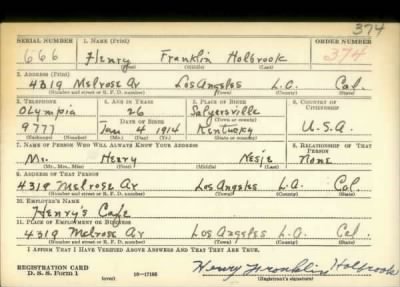 374
SERIAL NUMBER 1. NAME (Print) ORDER NUMBER
666 Henry Franklin Holbrook 374
(First) (Middle) (Last)
2. ADDRESS (Print)
4319 Melrose Av Los Angeles L.A. Cal.
(Number and street or R. F. D. number) (Town) (County) (State)
3. TELEPHONE 4. AGE IN YEARS 5. PLACE OF BIRTH 6. COUNTRY OF CITIZENSHIP
Olympia 26 Salyersville
DATE OF BIRTH (Town or county)
9777 Jan 4 1914 Kentucky U.S.A.
(Exchange) (Number) (Mo.) (Day) (Yr.) (State or country)
7. NAME OF PERSON WHO WILL ALWAYS KNOW YOUR ADDRESS 8. RELATIONSHIP OF THAT PERSON
Mr. Henry None
(Mr., Mrs., Miss) (First) (Middle) (Last)
9. ADDRESS OF THAT PERSON
4319 Melrose Av Los Angeles L.A. Cal.
(Number and street or R. F. D. number) (Town) (County) (State)
10. EMPLOYER'S NAME
Henry's Cafe
11. PLACE OF EMPLOYMENT OR BUSINESS
4319 Melrose Av Los Angeles L.A. Cal.
(Number and street or R. F. D. number) (Town) (County) (State)
I AFFIRM THAT I HAVE VERIFIED ABOVE ANSWERS AND THAT THEY ARE TRUE.
REGISTRATION CARD
D. S. S. Form 1 (over) 16—17105 Henry Franklin Holbrook
(Registrant's signature)